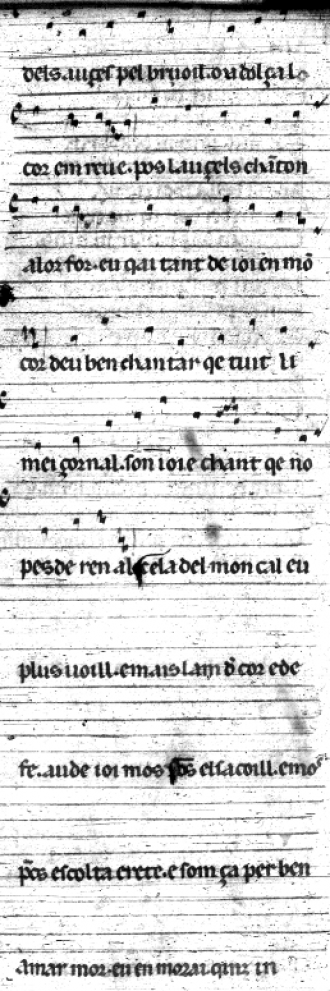 dels auçels pel bruoil. ou dolçal
cor em reue. pos lauçels chãton
alor for. eu qai tant de ioi en mõ
cor deu ben chantar qe tuit li
mei iornal. son ioie chant qe no
pes de ren al. cela del mon cal eu
plus uoill. emais lam d̃ cor ede
fe. aude ioi mos elsacoill. emos
p̃cs escolta erete. e som ça per ben
amar mor. eu en morai qinz in